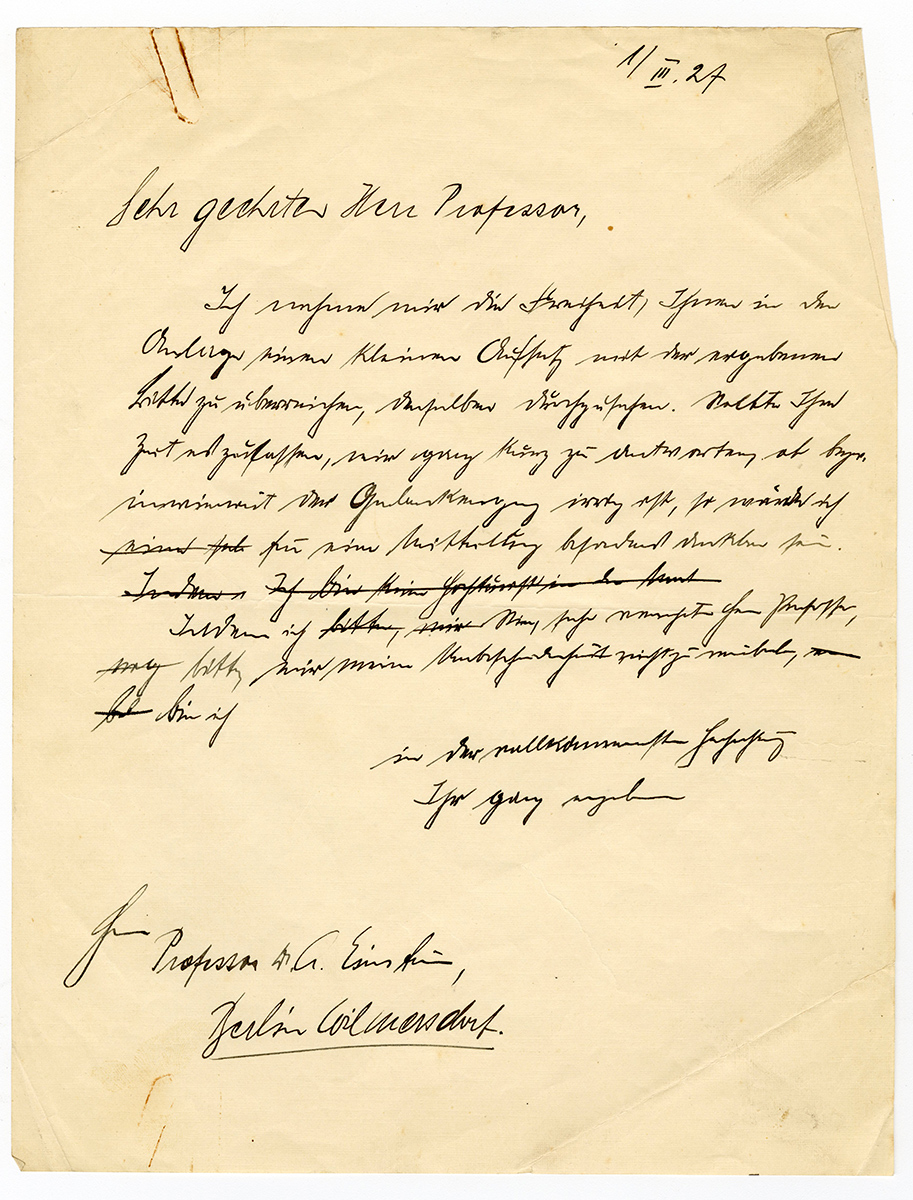 1/III.27
Sehr geehrter Herr Professor,
Ich nehme mir die Freiheit, Ihnen in der
Anlage einen kleinen Aufsatz mit der ergebenen
Bitte zu überreichen, denselben durchzusehen. Sollte Ihre
Zeit es zulassen, mir ganz kurz zu antworten, ob bezw.
inwieweit der Gedankengang irrig ist, so würde ich
eine für eine Mitteilung besonders dankbar sein.
Indem Ich bin kein in der
Indem ich bitte, mir Sie, sehr verehrter Herr Professor,
bitte, mir meine Unbescheidenheit nicht zu verübeln,
bin ich
in der vollkommensten Hochachtung
Ihr ganz ergebener
Herrn
Professor Dr. A. Einstein,
Berlin Wilmersdorf.